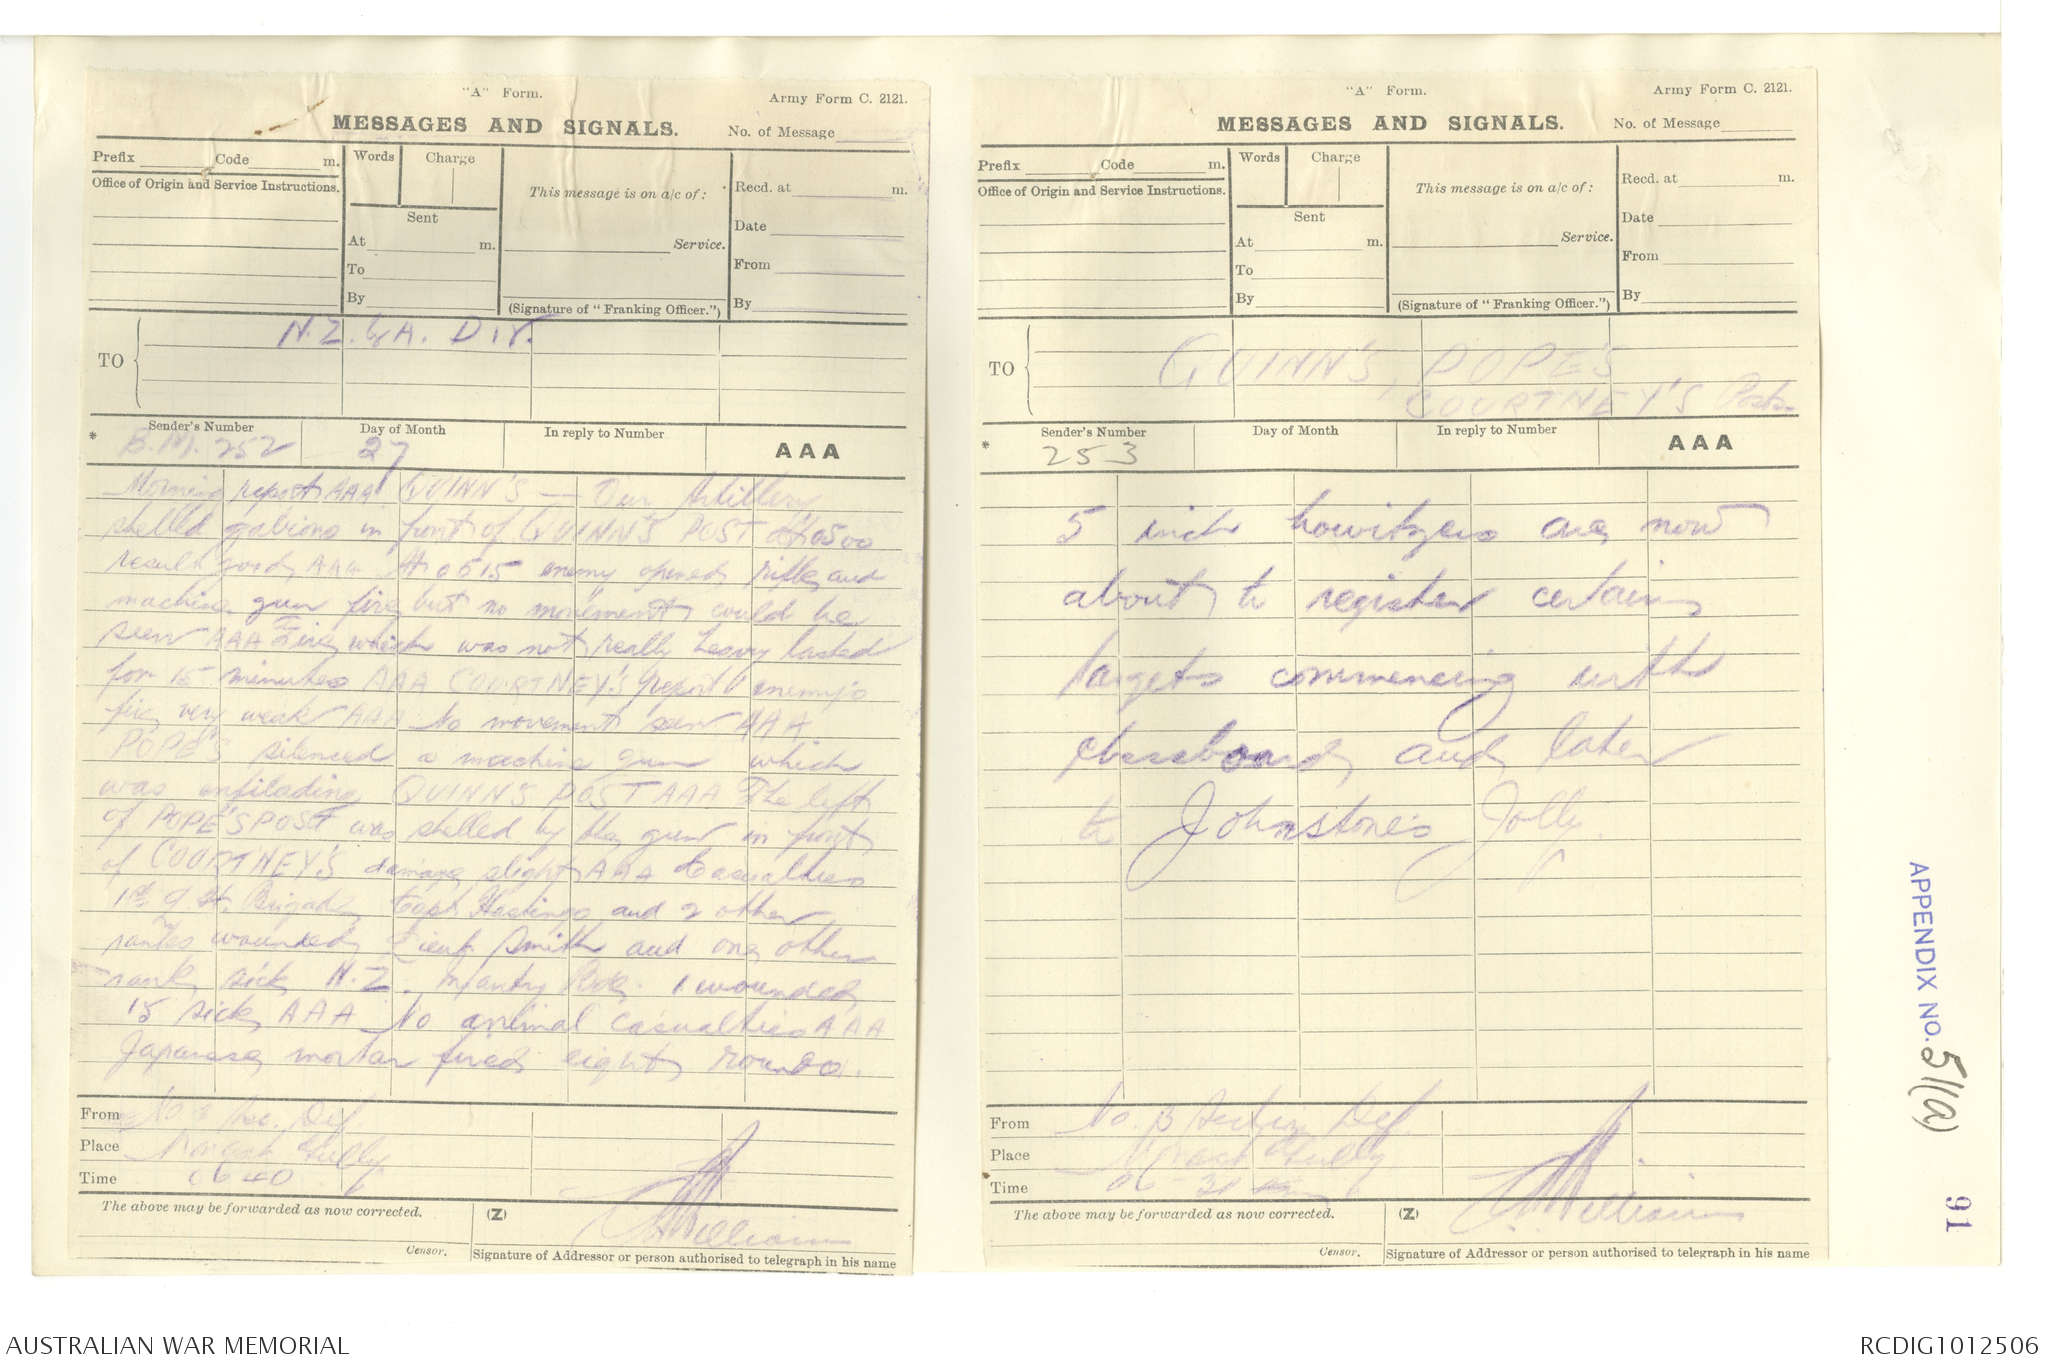 "A" Form.
Army Form C. 2121.
MESSAGES AND SIGNALS.
No. of Message
Prefix Code m.
Words Charge
This message is on a/c of:
Recd. at m.
Office of Origin and Service Instructions.
Sent
Date
At m.
Service.
From
To
By
(Signature of "Franking Officer.")
By
TO
N.Z. & A. DIV.
Sender's Number
Day of Month
In reply to Number
AAA
* B.M. 252
27
Morning report AAA QUINN'S — Our Artillery
shelled gabions in front of QUINN'S POST at 0500
result good AAA At 0515 enemy opened rifle and
machine gun fire but no movement could be
seen AAA Fire which was not really heavy lasted
for 15 minutes AAA COURTNEY'S report enemy's
fire very weak AAA No movement seen AAA
POPE'S silenced a machine gun which
was enfilading QUINN'S POST AAA The left
of POPE'S POST was shelled by the gun in front
of COURTNEY'S damage slight AAA Casualties
Brigade Capt Hastings and 2 other
ranks wounded Lieut Smith and one other
rank sick N.Z. Infantry Bde. 1 wounded
15 sick AAA No animal casualties AAA
Japanese mortar fired eight rounds.
From No 3 Sec. Def.
Place Monash Gully
Time 0640
The above may be forwarded as now corrected.
(Z)
Williams
Censor.
Signature of Addressor or person authorised to telegraph in his name
"A" Form.
Army Form C. 2121.
MESSAGES AND SIGNALS.
No. of Message
Prefix Code m.
Words Charge
This message is on a/c of:
Recd. at m.
Office of Origin and Service Instructions.
Sent
Date
At m.
Service.
From
To
By
(Signature of "Franking Officer.")
By
TO
QUINN'S, POPE'S
COURTNEY'S Posts
Sender's Number
Day of Month
In reply to Number
AAA
* 253
5 inch howitzers are now
about to register certain
targets commencing with
chessboard and later
to Johnstone's Jolly.
From No. 3 Section Def.
Place Monash Gully
Time
The above may be forwarded as now corrected.
(Z)
Williams
Censor.
Signature of Addressor or person authorised to telegraph in his name
APPENDIX NO. 51(a)
91
AUSTRALIAN WAR MEMORIAL
RCDIG1012506